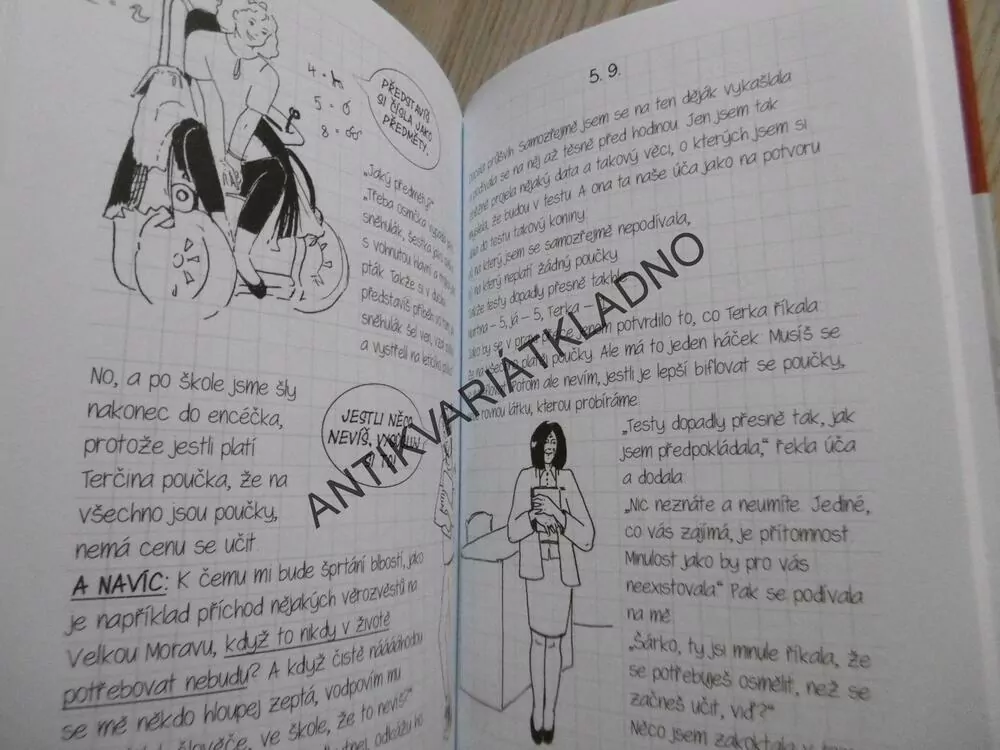 4 =
5 = 6
8 =
PŘEDSTAVÍŠ
SI ČÍSLA JAKO
PŘEDMĚTY.
„Jaký předměty?“
„Třeba osmička vypadá
sněhulák, šestka
s vohnutou hlavní a
pták. Takže si v duchu
představíš příběh
sněhulák šel ven, vzal
a vystřelil na letícího
No, a po škole jsme šly
nakonec do encéčka,
protože jestli platí
Terčina poučka, že na
všechno jsou poučky,
nemá cenu se učit.
JESTLI NĚCO
NEVÍŠ,
A NAVÍC: K čemu mi bude šprtání blbostí, jako
je například příchod nějakých věrozvěstů na
Velkou Moravu, když to nikdy v životě
potřebovat nebudu? A když čistě náááhodou
se mě někdo hloupej zeptá, vodpovím mu
člověče, ve škole, že to nevíš?“
odkážu ho
5. 9.
průšvih samozřejmě jsem se na ten děják vykašlala
podívala se na něj až těsně před hodinou. Jen jsem tak
projela nějaký data a takový věci, o kterých jsem si
myslela, že budou v testu. A ona ta naše úča jako na potvoru
dala do testu takový koniny:
na který jsem se samozřejmě nepodívala,
na který neplatí žádný poučky.
Takže testy dopadly přesně takhle:
Martina – 5, já – 5, Terka –
Jako by se v praxi přece jenom potvrdilo to, co Terka říkala
že na všechno platěj poučky. Ale má to jeden háček: Musíš se
Potom ale nevím, jestli je lepší biflovat se poučky,
rovnou látku, kterou probíráme.
„Testy dopadly přesně tak, jak
jsem předpokládala,“ řekla úča
a dodala:
„Nic neznáte a neumíte. Jediné,
co vás zajímá, je přítomnost.
Minulost jako by pro vás
neexistovala.“ Pak se podívala
na mě:
„Šárko, ty jsi minule říkala, že
se potřebuješ osmělit, než se
začneš učit, viď?“
Něco jsem zakoktala
ANTIKVARIÁTKLADNO